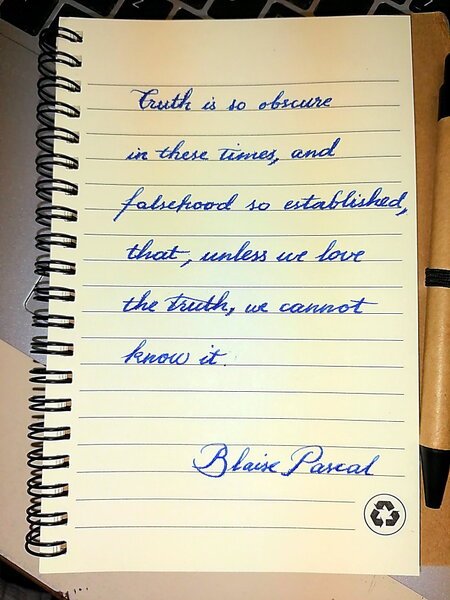 Truth is so obscure
in these times, and
falsehood so established,
that, unless we love
the truth, we cannot
know it.
Blaise Pascal